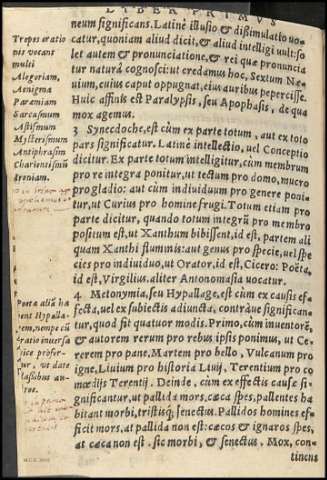 LIBER PRIMVS
neum significans. Latinè illusio, & dissimulatio uo-
catur, quoniam aliud dicit, & aliud intelligi uult: so
let autem & pronunciatione, & rei que pronuncia
tur natura cognosci: ut credamus hoc, Sextum Ne-
uium, cuius caput oppugnat, eius auribus pepercisse.
Huic affinis est Paralypsis, seu Apophasis, de qua
mox agemus.
3 Synecdoche, est cùm ex parte totum, aut ex toto
pars significatur. Latinè intellectio, uel Conceptio
dicitur. Ex parte totum intelligitur, cùm membrum
pro re integra ponitur, ut tectum pro domo, mucro
pro gladio: aut cùm indiuiduum pro genere poni-
tur, ut Curius pro homine frugi. Totum etiam pro
parte dicitur, quando totum integrū pro membro
positum est, ut Xanthum bibissent, id est, partem ali
quam Xanthi fluminis: aut genus pro specie, uel spe
cies pro indiuiduo, ut Orator, id est, Cicero: Poëta,
id est, Virgilius. aliter Antonomasia uocatur.
4 Metonymia, seu Hypallage, est cùm ex causis ef-
fecta, uel ex subiectis adiuncta, contráque significan-
tur, quod fit quatuor modis. Primo, cùm inuentorē,
& autorem rerum pro rebus ipsis ponimus, ut Ce-
rerem pro pane, Martem pro bello, Vulcanum pro
igne, Liuium pro historia Liuij, Terentium pro co
mœdijs Terentij. Deinde, cùm ex effectis causæ si-
gnificantur, ut pallida mors, cæca spes, pallentes ha
bitant morbi, tristisq; senectus. Pallidos homines ef-
ficit mors, at pallida non est: cæcos & ignaros spes,
at cæca non est. sic morbi, & senectus. Mox, con-
tinens
Tropos eratio
nes uocant
multi
Alegoriam,
Aenigma
Parœmiam
Sarcasmum
Astismum
Mycterismum
Antiphrasim
Charientismū
Ironiam.
Poëtæ aliū ha
ent Hypalla-
gem, nempe cū
ratio inuersa
ice profer-
tur, ut dare
lassibus au-
ros.